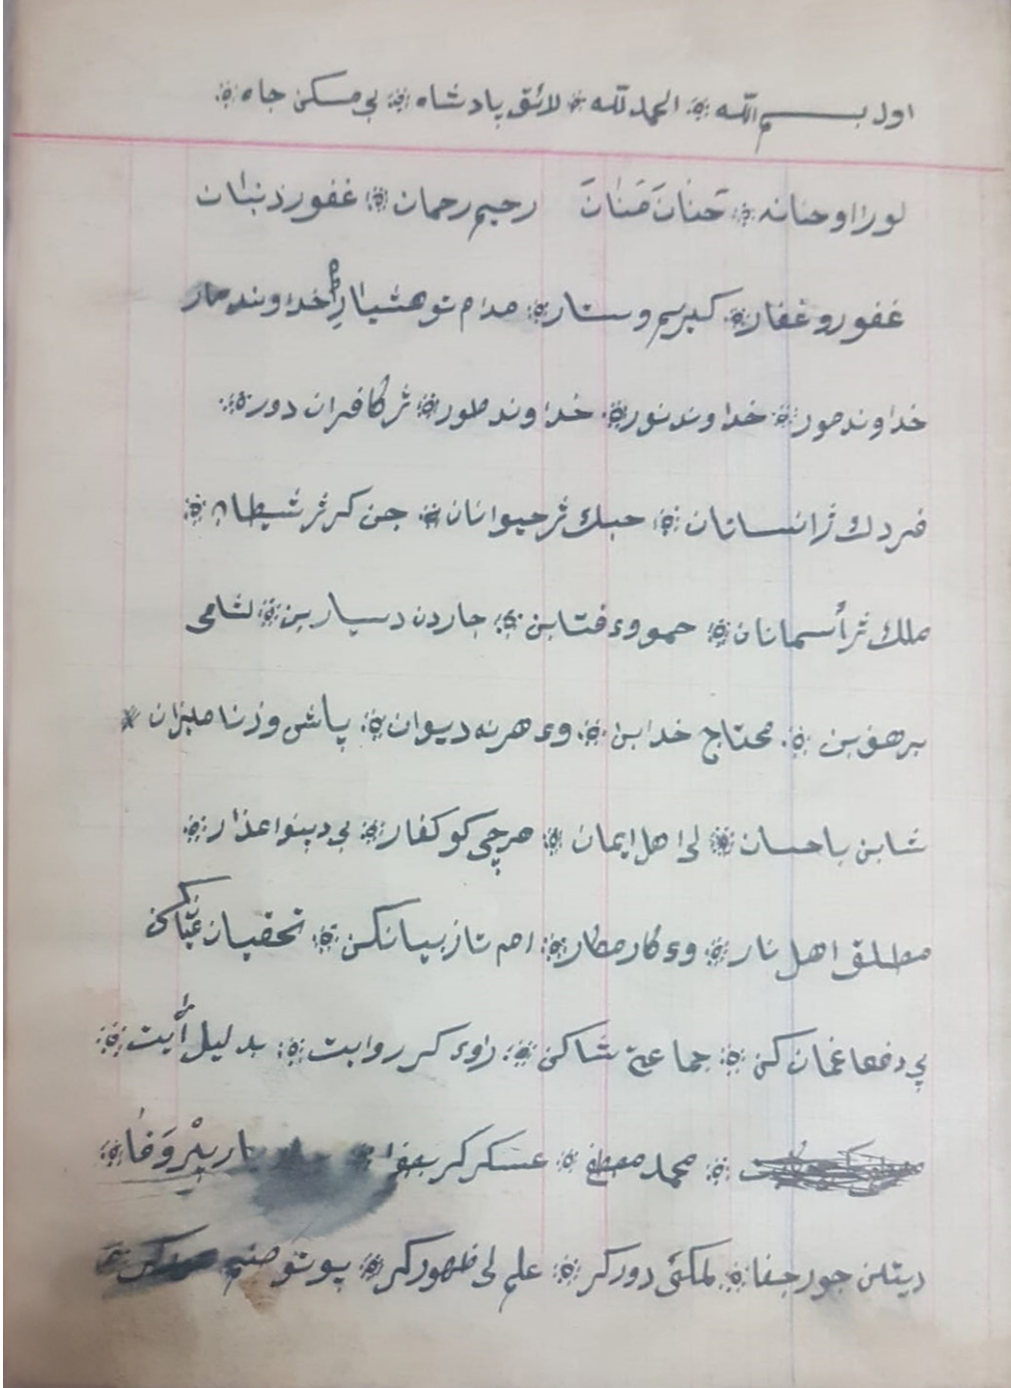 اول بسم الله ۞ الحمد لله ۞ لائق پادشاه ۞ بی مسکن جاه ۞
لورا وحنانه ۞ حَنانَ مَنانَ رحیم رحمان ۞ غفور ذنبان
غفور و غفار ۞ کیرم و ستار ۞ مدام تو هشیار ۞ خداوند مار
خداوند مور ۞ خداوند نور ۞ خداوند طور ۞ ژ کافران دور ۞
فردك ژ انسانان ۞ حبك ژ حیوانان ۞ جن کر ژ شیطان ۞
ملك ژ أسمانان ۞ حمو وء فتابن ۞ جاردن دسیارین ۞ لشامی
برهنوین ۞ محتاج خدابن ۞ وء هرنه دیوان ۞ پاشی وزنا میزان
شابن باحسان ۞ لی اهل ایمان ۞ هرچی کو کفار ۞ بی دبینوا عذار ۞
مطلق اهل نار ۞ وء کار مکار ۞ ام تاز بیانکن ۞ تحقیان کن
پی دفعا غمان کن ۞ جماعة شاکن ۞ راوء کر روایت ۞ بدلیل أیت ۞
۞ محمد مصطفی ۞ عسکر کر بصفا ۞ وَفا ۞
دیتن جور جفا ۞ لمکئی دورکر ۞ علم لی ظهورکر ۞ پوتو صنم